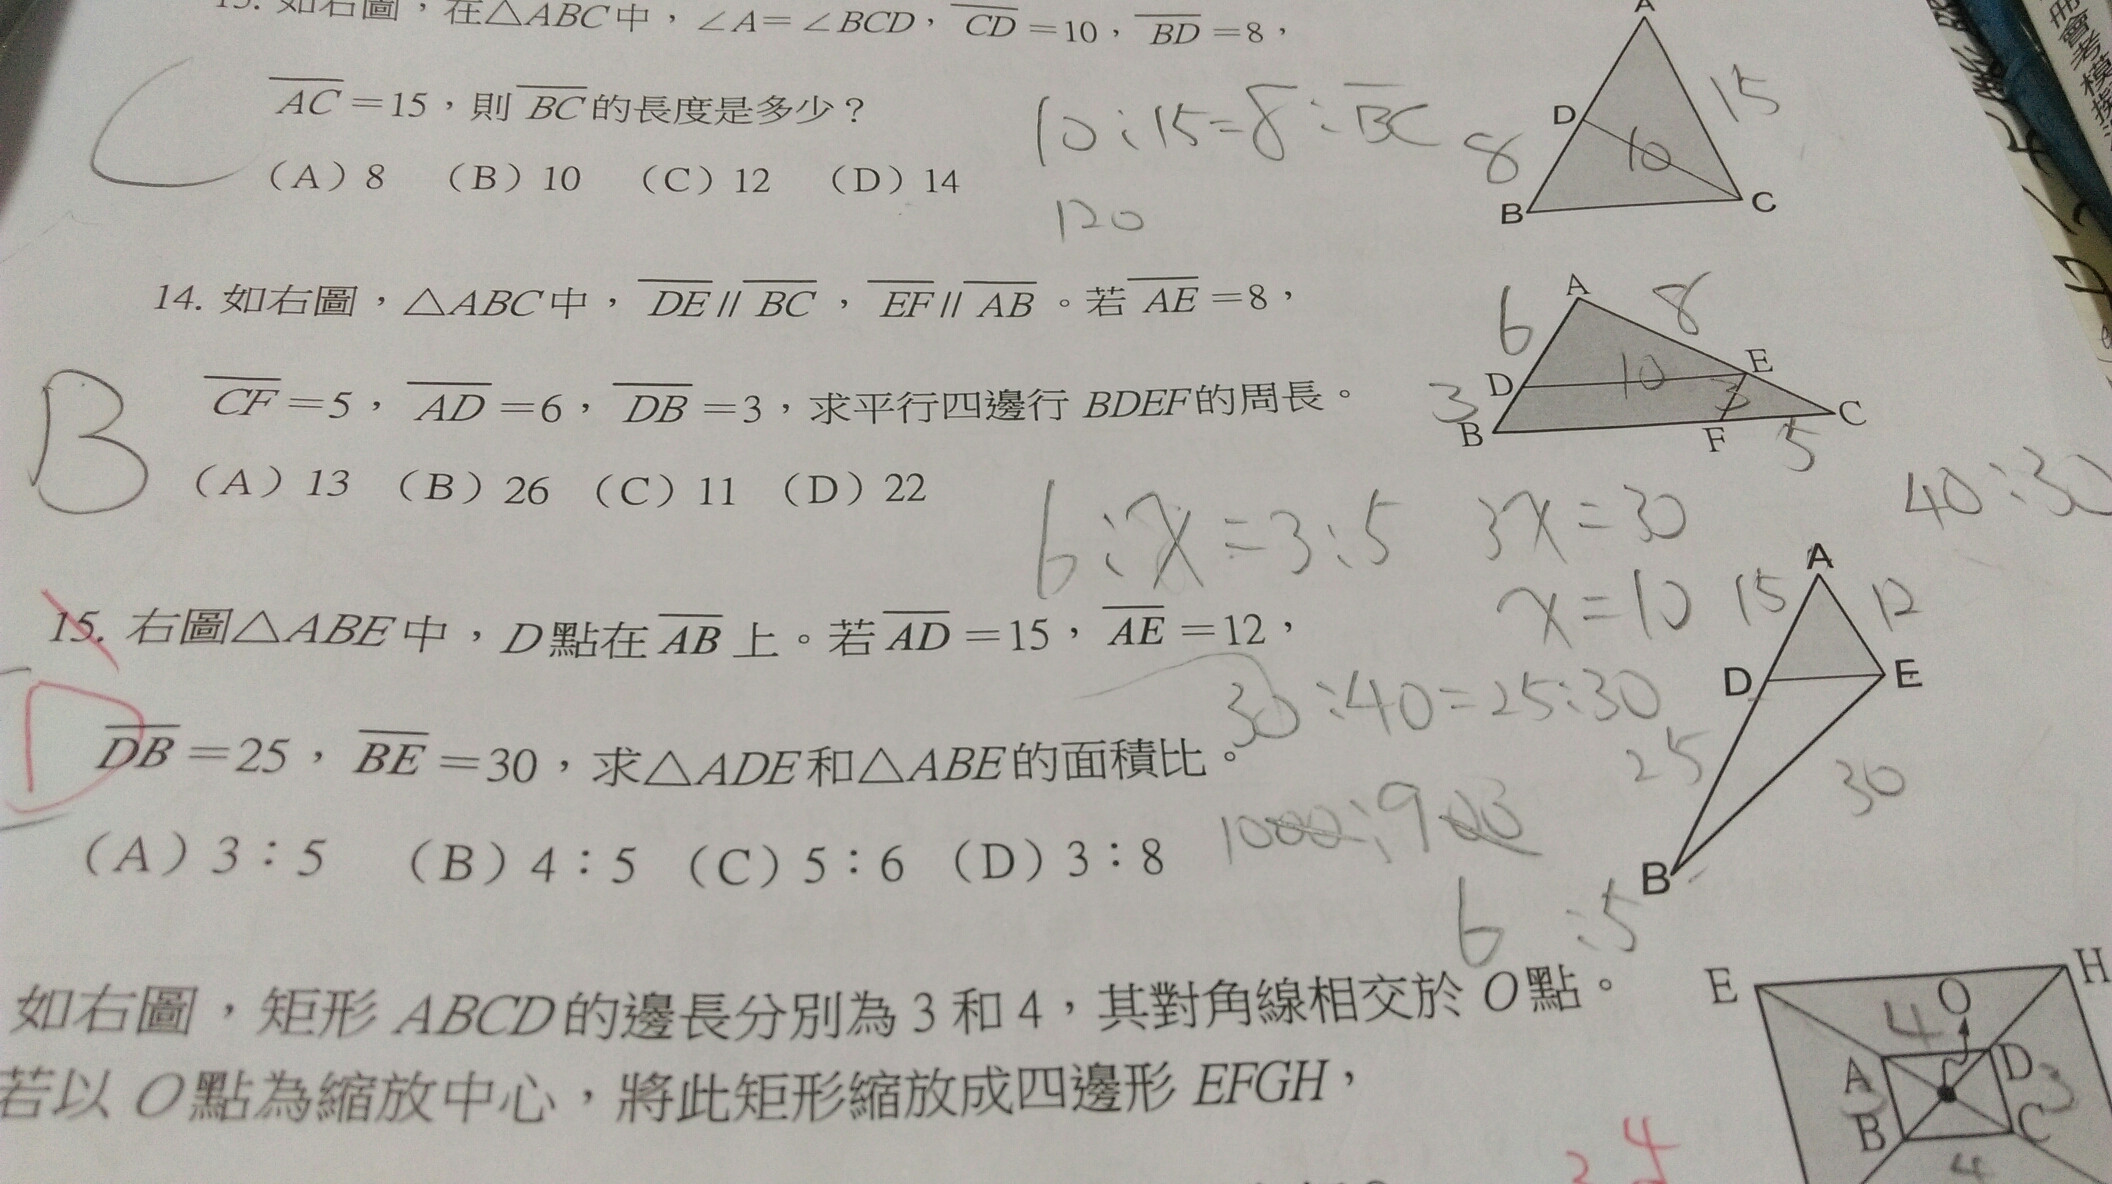 13. 如右圖，在△ABC中，∠A=∠BCD，CD=10，BD=8，
AC=15，則BC的長度是多少？
(A) 8 (B) 10 (C) 12 (D) 14
C
10:15=8:BC
120
A
D
B
C
15
10
8
14. 如右圖，△ABC中，DE//BC，EF//AB。若AE=8，
CF=5，AD=6，DB=3，求平行四邊行BDEF的周長。
(A) 13 (B) 26 (C) 11 (D) 22
B
A
D
E
B
F
C
6
8
10
3
3
5
6:x=3:5 3x=30
x=10
40:30
15. 右圖△ABE中，D點在AB上。若AD=15，AE=12，
DB=25，BE=30，求△ADE和△ABE的面積比。
(A) 3：5 (B) 4：5 (C) 5：6 (D) 3：8
D
30:40=25:30
1000:900
6:5
A
15
12
D
E
25
30
B
如右圖，矩形ABCD的邊長分別為3和4，其對角線相交於O點。
若以O點為縮放中心，將此矩形縮放成四邊形EFGH，
E
H
O
4
A
D
3
B
C
4
4